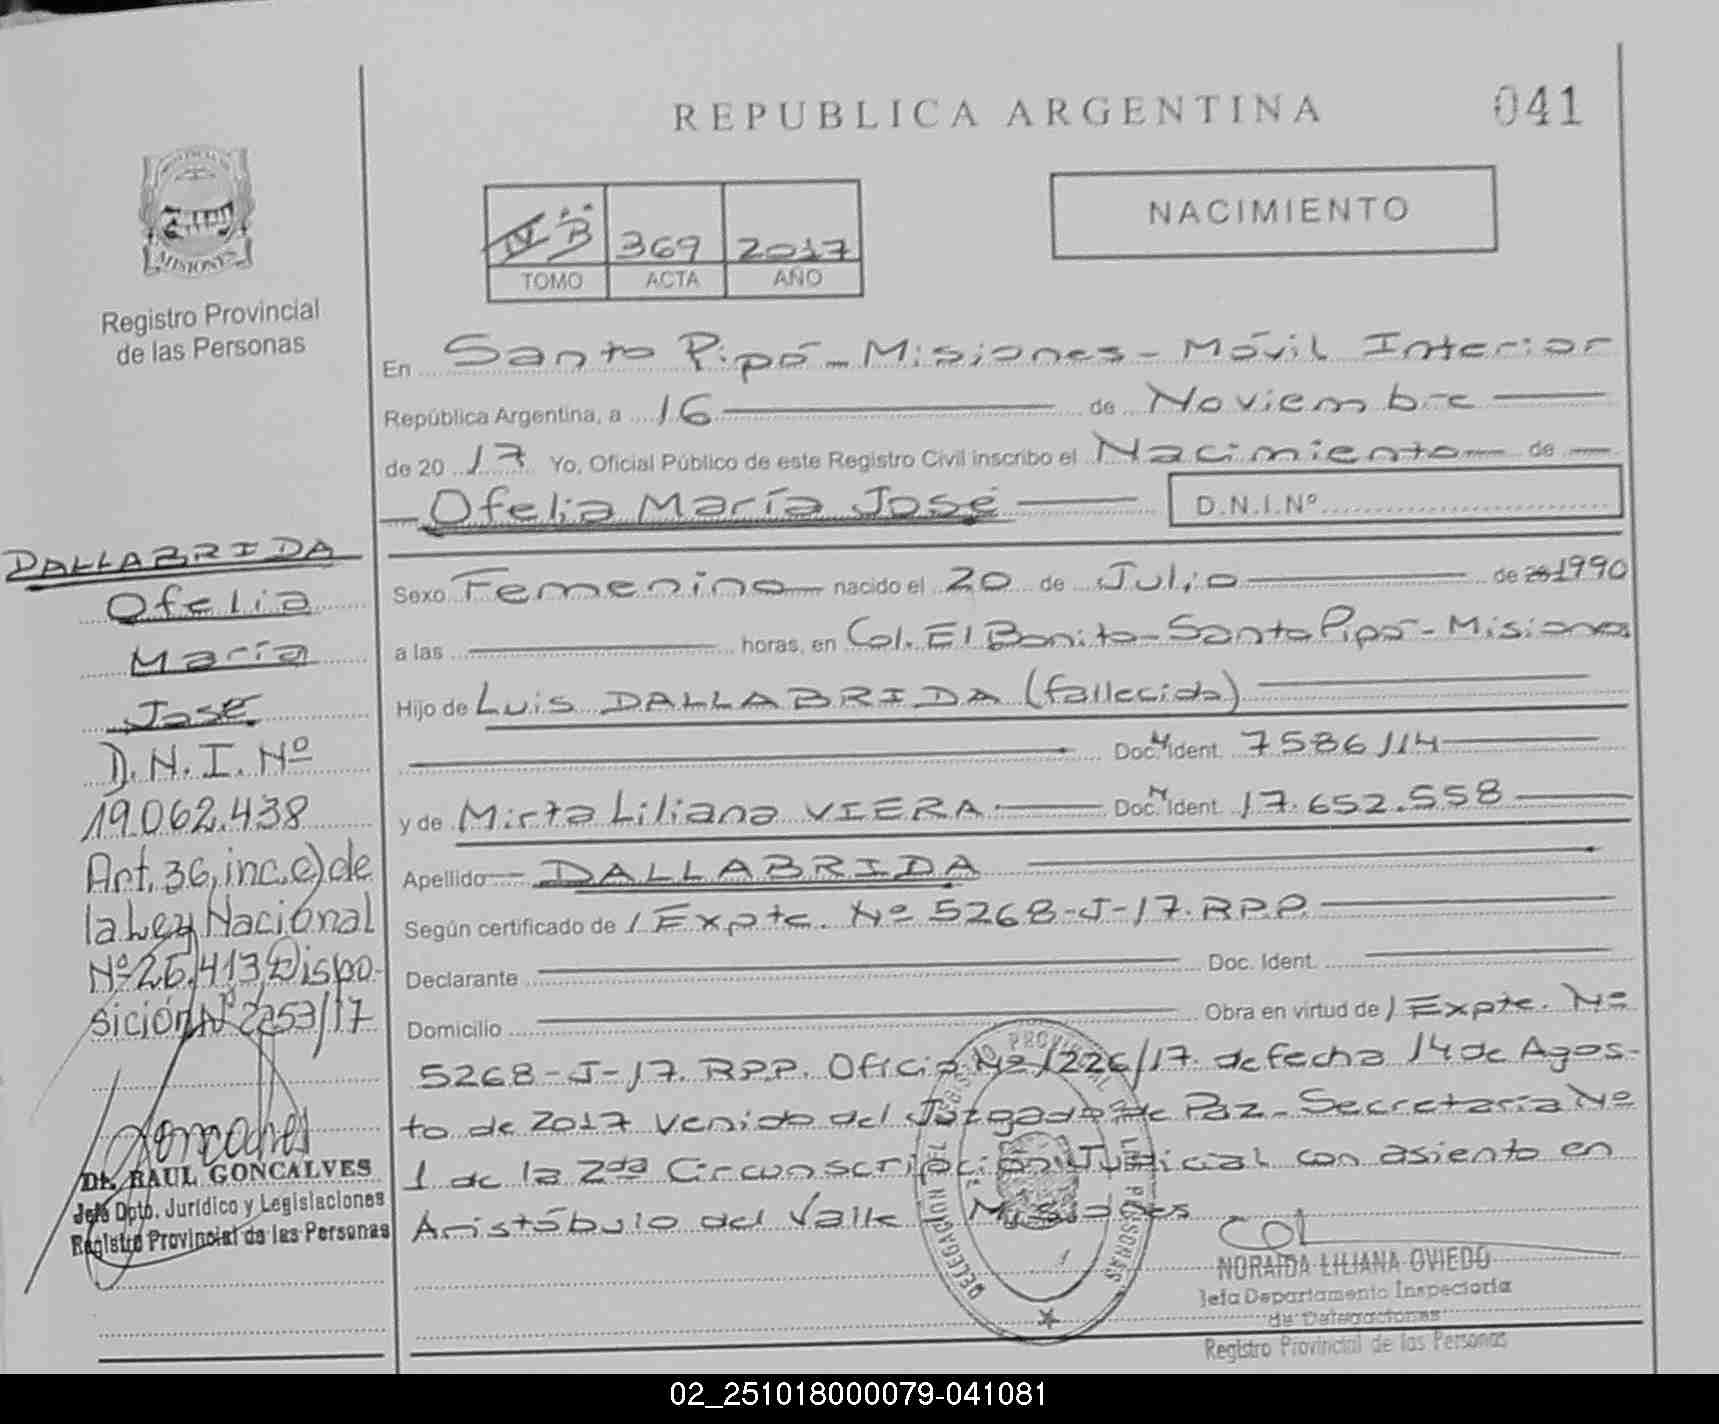 REPUBLICA ARGENTINA
041
MISIONES
Registro Provincial
de las Personas
IV B 369 2017
TOMO ACTA AÑO
NACIMIENTO
En Santo Pipó - Misiones - Móvil Interior
República Argentina, a 16 de Noviembre
de 20 17 Yo, Oficial Público de este Registro Civil inscribo el Nacimiento de
Ofelia María José
D.N.I.Nº
Sexo Femenino nacido el 20 de Julio de 20 1990
a las horas, en Col. El Bonito - Santo Pipó - Misiones
Hijo de Luis DALLABRIDA (fallecido)
Doc. Ident. 7586114
y de Mirta Liliana VIERA Doc. Ident. 17.652.558
Apellido DALLABRIDA
Según certificado de / Expte. Nº 5268-J-17. R.P.P.
Declarante Doc. Ident.
Domicilio Obra en virtud de / Expte. Nº
5268-J-17. R.P.P. Oficio Nº 1226/17. de fecha 14 de Agos-
to de 2017 venido del Juzgado de Paz - Secretaría Nº
1 de la 2da Circunscripción Judicial con asiento en
Aristóbulo del Valle Misiones
DALLABRIDA
Ofelia
María
José
D.N.I. Nº
19.062.438
Art. 36, inc. c) de
la Ley Nacional
Nº 26.413, Dispo-
sición Nº 2253/17
Dr. RAUL GONCALVES
Jefe Dpto. Jurídico y Legislaciones
Registro Provincial de las Personas
NORAIDA LILIANA OVIEDO
Jefa Departamento Inspectoria
de Delegaciones
Registro Provincial de las Personas
02_251018000079-041081